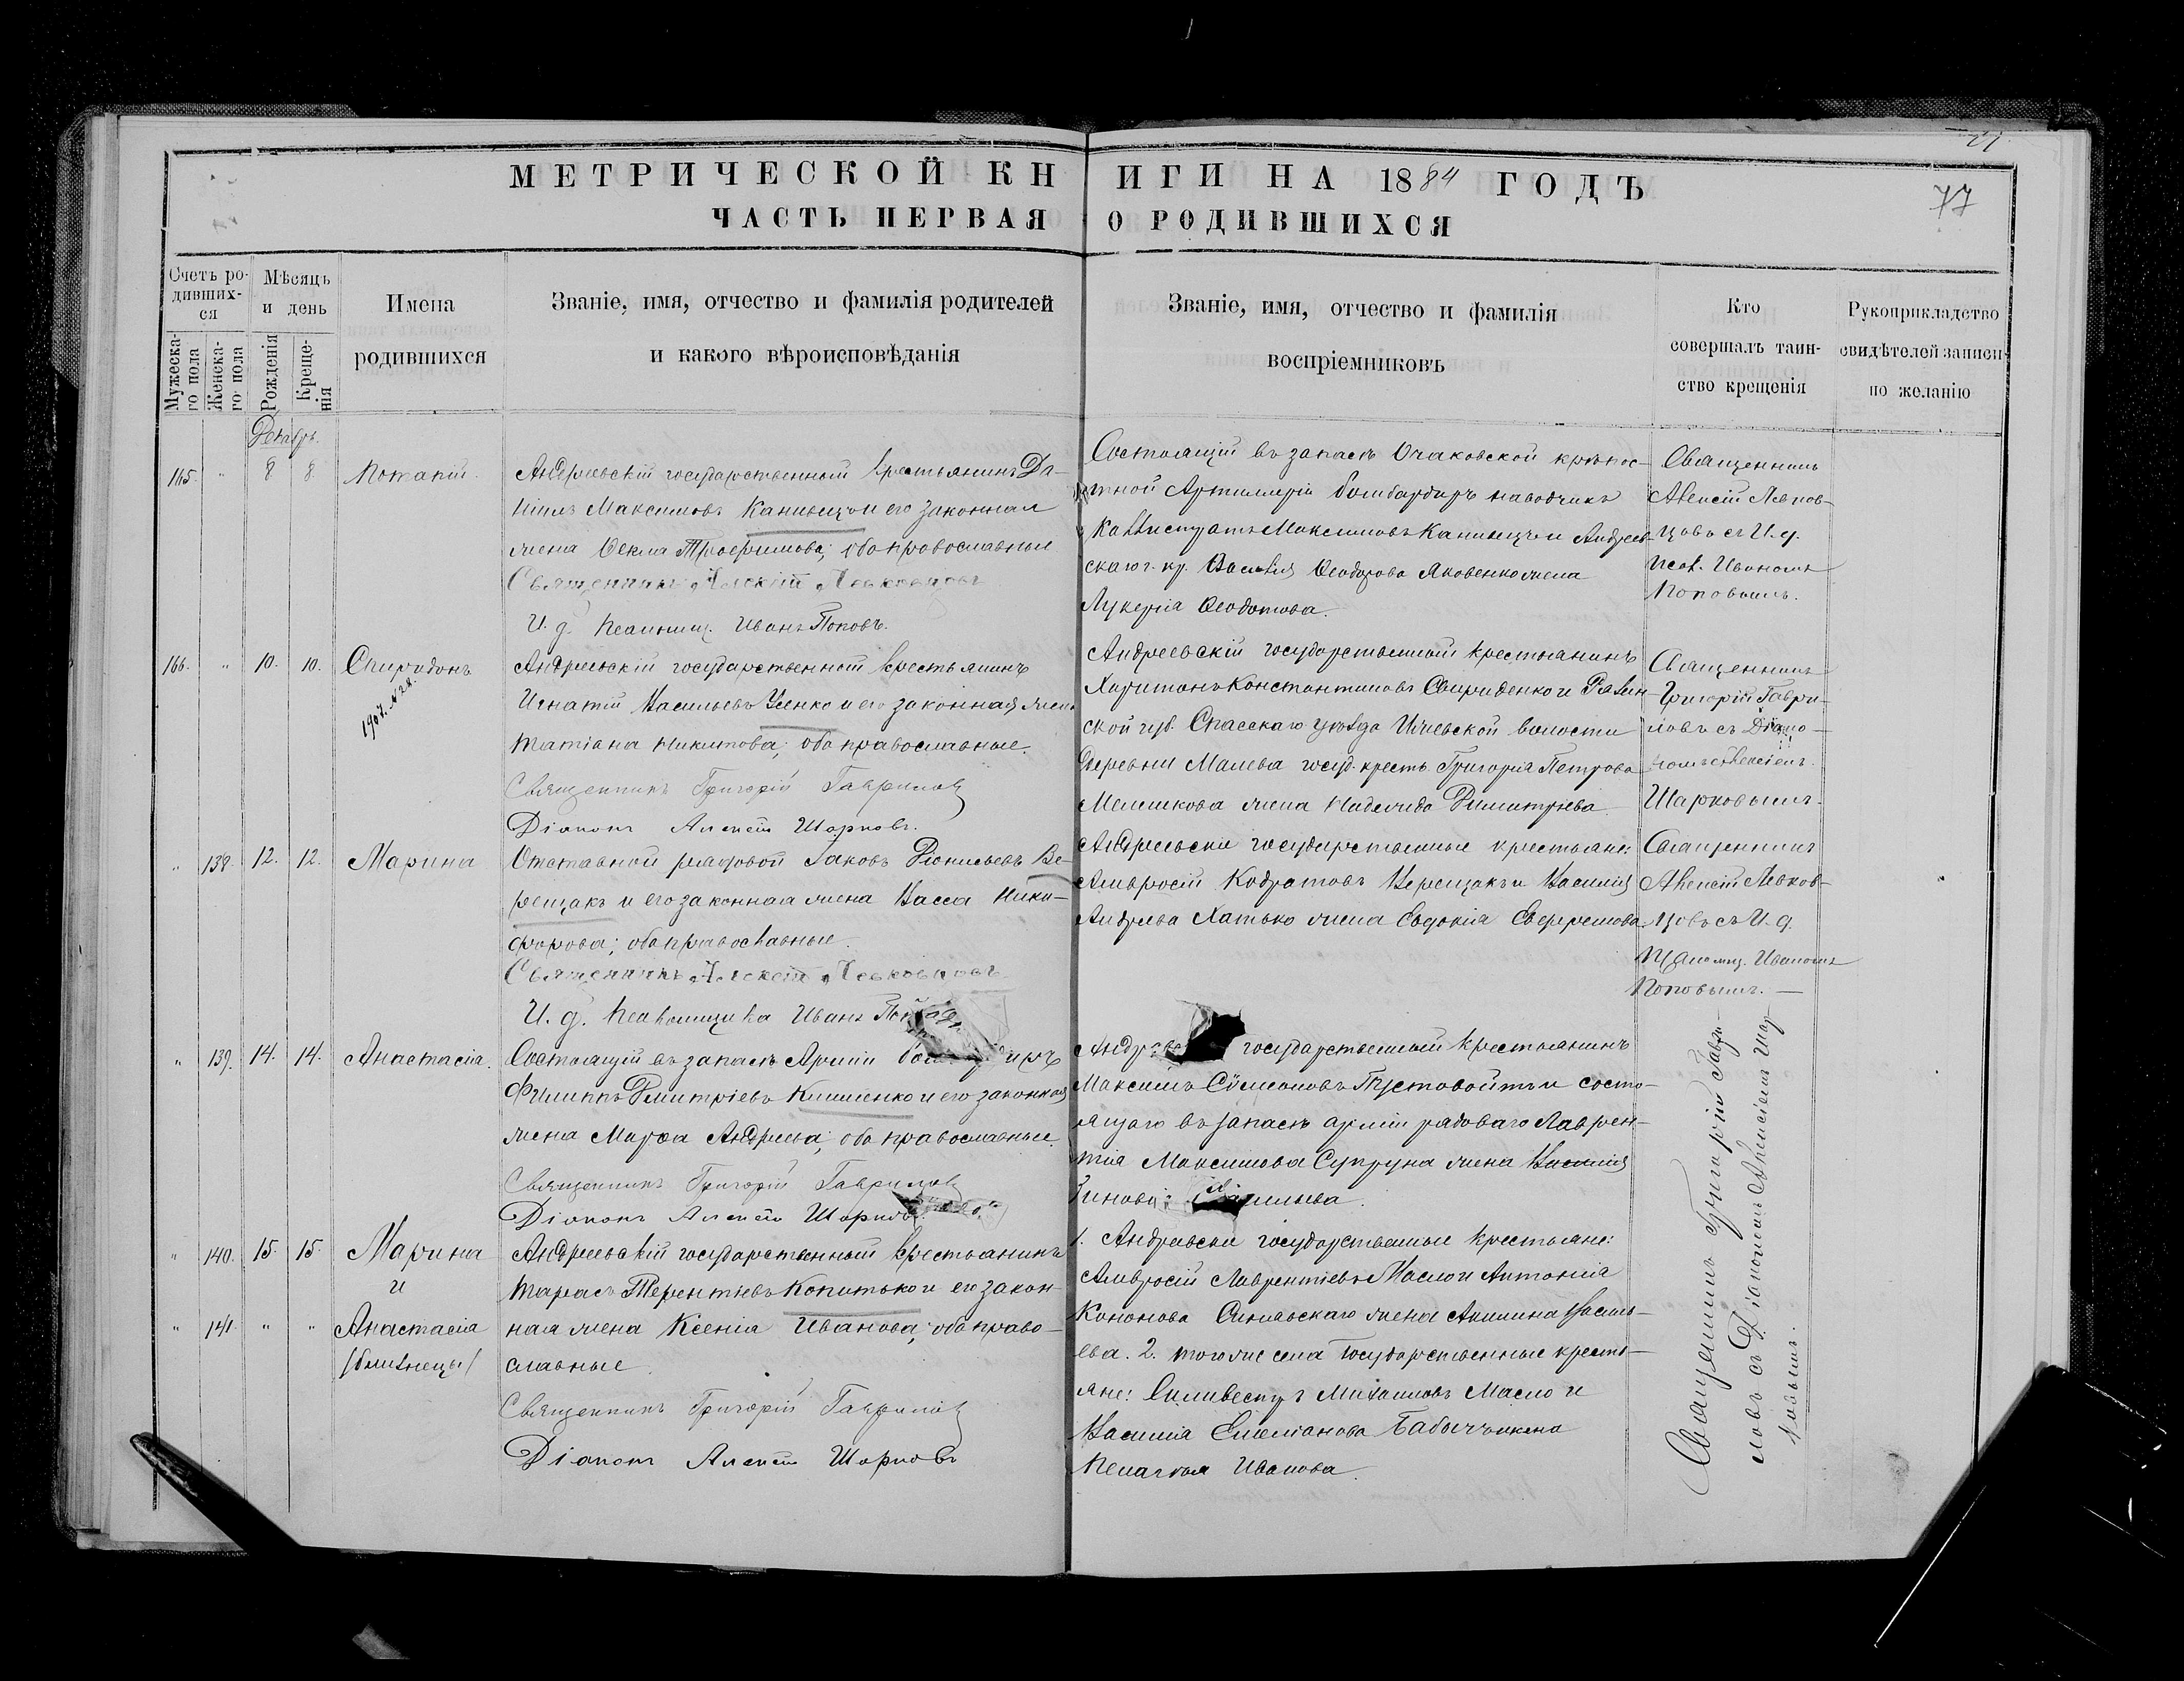 77
МЕТРИЧЕСКОЙ КНИГИ НА 1884 ГОДЪ
ЧАСТЬ ПЕРВАЯ О РОДИВШИХСЯ
Счетъ родивших-ся
Мужеска-го пола
Женска-го пола
Мѣсяцъ и день
Рожденія
Креще-нія
Имена
родившихся
Званіе, имя, отчество и фамилія родителей
и какого вѣроисповѣданія
Званіе, имя, отчество и фамилія
воспріемниковъ
Кто
совершалъ таин-
ство крещенія
Рукоприкладство
свидѣтелей записи
по желанію
Декабрь
165. " 8 8. Потапій.
Андреевскій государственный крестьянинъ Да-
ніилъ Максимовъ Канивецъ и его законная
жена Ѳекла Трофимова; оба православные
Священникъ Алексѣй Левковцовъ
И. д. псаломщ. Иванъ Поповъ.
Состоящій въ запасѣ Очаковской крѣпос-
тной Артиллеріи бомбардиръ наводчикъ
Каллистратъ Максимовъ Канивецъ и Андреев-
скаго г. кр. Василія Ѳеодорова Яковенко жена
Лукерія Ѳеодотова.
Священникъ
Алексѣй Левков-
цовъ съ И. д.
псал. Иваномъ
Поповымъ.
166. " 10. 10. Спиридонъ
Андреевскій государственный крестьянинъ
Игнатій Васильевъ Усенко и его законная жена
Татіана Никитова; оба православные.
Священникъ Григорій Гавриловъ
Діаконъ Алексѣй Шарковъ.
Андреевскій государственный крестьянинъ
Харитонъ Константиновъ Свириденко и Рязан-
ской губ. Спасскаго уѣзда Ижевской волости
деревни Малева госуд. крест. Григорія Петрова
Мешкова жена Надежда Димитріева
Священникъ
Григорій Гаври-
ловъ съ Діако-
номъ Алексіемъ
Шарковымъ.
" 138. 12. 12. Марина
Отставной рядовой Іаковъ Діонисьевъ Ве-
рещакъ и его законная жена Васса Ники-
форова; оба православные.
Священникъ Алексѣй Левковцовъ
И. д. псаломщика Иванъ
Андреевскіе государственные крестьяне:
Амвросій Кодратовъ Верещакъ и Василія
Андреева Хатько жена Евдокія Ефремова
Священникъ
Алексѣй Левков-
цовъ съ И. д.
псаломщ. Иваномъ
Поповымъ. —
" 139. 14. 14. Анастасіа.
Состоящій въ запасѣ Арміи
Филиппъ Дмитріевъ Кишиенко и его законная
жена Марѳа Андреева; оба православные.
Священникъ Григорій Гавриловъ
Діаконъ Алексѣй Шарковъ.
государственный крестьянинъ
Максимъ Сѵмеоновъ Пустовойтъ и состо-
ящаго въ запасѣ арміи рядоваго Лаврен-
тія Максимова Супруна жена Василія
Священникъ Григорій Гаври-
ловъ съ Діакономъ Алексіемъ Шар-
ковымъ.
" 140. 15. 15. Марина
и
" 141. " " Анастасіа
/близнецы/
Андреевскій государственный крестьянинъ
Тарасъ Терентіевъ Копитько и его закон-
ная жена Ксенія Иванова; оба право-
славные.
Священникъ Григорій Гавриловъ
Діаконъ Алексѣй Шарковъ
1. Андреевскіе государственные крестьяне:
Амвросій Лаврентіевъ Масло и Антонія
Кононова Синявскаго жена Акилина Василь-
ева. 2. того же села государственные кресть-
яне: Силивестръ Михаиловъ Масло и
Василія Емеліанова жена
Пелагія Иванова.